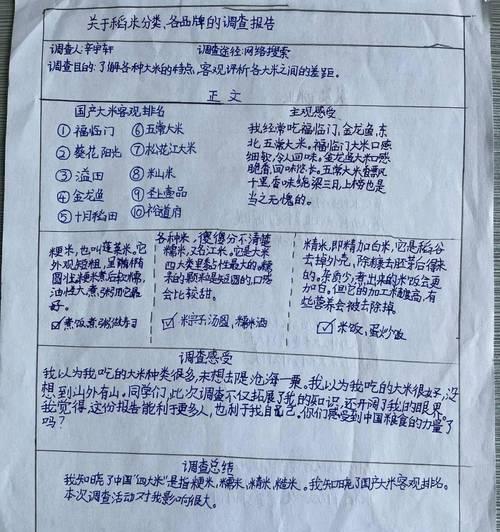 关于稻米分类、各品牌的调查报告
调查人:辛中轩 调查途径:网络搜索
调查目的:了解各种大米的特点,客观评析各大米之间的差距。
正文
国产大米客观排名
①福临门 ⑥五常大米
②葵花阳光 ⑦松花江大米
③溢田 ⑧籼山米
④金龙鱼 ⑨圣上壹品
⑤十月稻田 ⑩裕道府
主观感受
我经常吃福临门,金龙鱼,东
北,五常大米。福临门大米口感
细软,令人回味。金龙鱼大米口感
脆香,回味悠长。五常大米香飘
十里,香味绕梁三日,上榜也是
当之无愧的。
粳米,也叫蓬莱米。它
外观短粗,呈椭
圆。粳米煮后较糯,
油性大,煮粥用它最
好。
☑煮饭,煮粥,做寿司
各种米,傻傻分不清楚
糯米,又名江米。它是大米
四大类里黏性最大的。糯米
的颗粒是短圆的,口感
会比较甜。
☑粽子,汤圆,糯米酒
精米,即精加白米,它是稻谷
去掉外壳,除糠去胚芽后得来
的。杂质少,煮出来的米饭会更
加白。但它的加工程度高,有
些营养会被去除掉。
☑米饭,蛋炒饭
调查感受
我以为我吃的大米种类很多,未想去隄沧海一粟。我以为我吃的大米很好,没
想到山外有山。同学们,此次调查不仅拓展了我的知识,还开阔了我的眼界。
我觉得,这份报告能利于更多人,也利于我自己。你们感受到中国粮食的力量了
吗?
调查总结
我知晓了中国“四大米”是指粳米,糯米,精米,糙米。我知晓了国产大米客观排名。
本次调查活动对我影响很大。